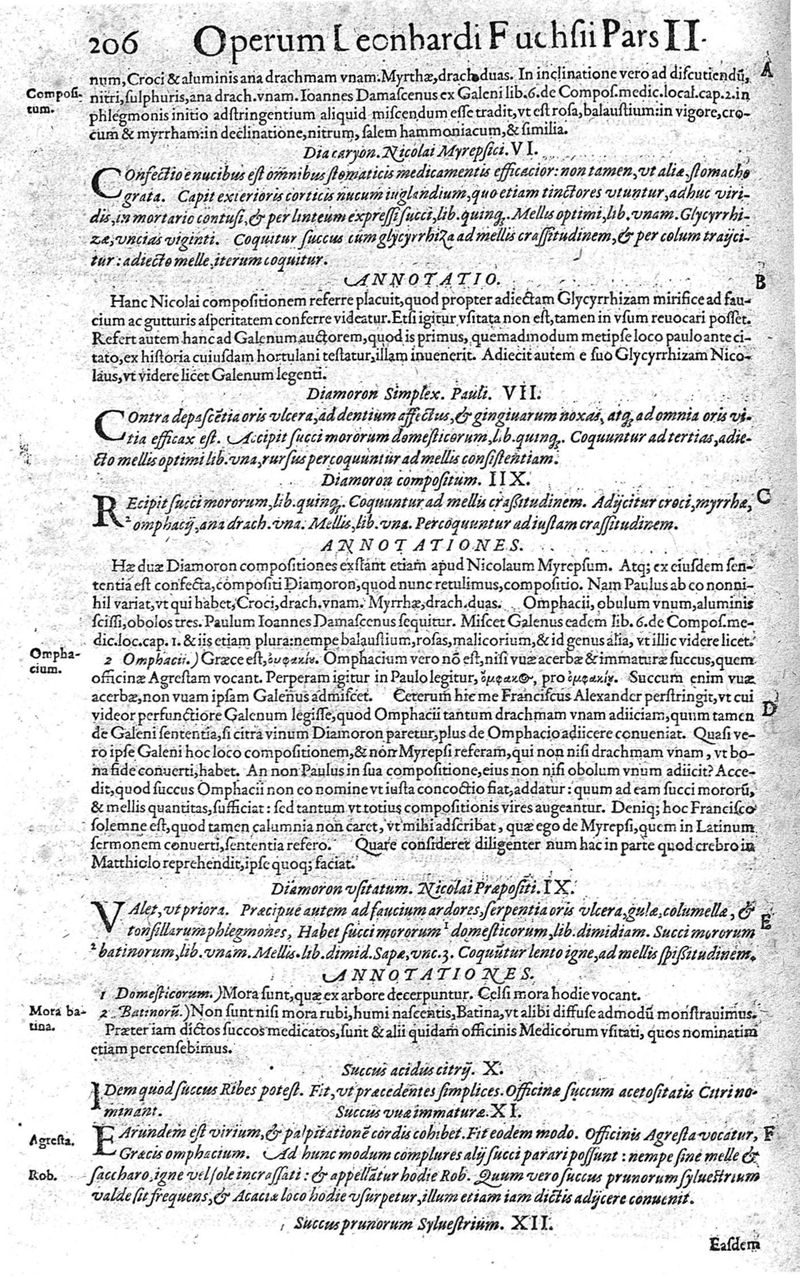 206 Operum Leonhardi Fuchsii Pars II.
num, Croci & aluminis ana drachmam vnam. Myrrhæ, drach. duas. In inclinatione vero ad discutiendū, A
Composi- nitri, sulphuris, ana drach. vnam. Ioannes Damascenus ex Galeni lib. 6. de Compos. medic. local. cap. 2. in
tum. phlegmonis initio adstringentium aliquid miscendum esse tradit, vt est rosa, balaustium: in vigore, cro-
cum & myrrham: in declinatione, nitrum, salem hammoniacum, & similia.
Diacaryon. Nicolai Myrepsici. VI.
COnfectio e nucibus est omnibus stomaticis medicamentis efficacior: non tamen, vt aliæ, stomacho
grata. Capit exterioris corticis nucum iuglandium, quo etiam tinctores vtuntur, adhuc viri-
dis, in mortario contusi, & per linteum expressi succi, lib. quinq;. Mellis optimi, lib. vnam. Glycyrrhi-
zæ, vncias viginti. Coquitur succus cum glycyrrhiza ad mellis crassitudinem, & per colum traijci-
tur: adiecto melle, iterum coquitur.
ANNOTATIO. B
Hanc Nicolai compositionem referre placuit, quod propter adiectam Glycyrrhizam mirifice ad fau-
cium ac gutturis asperitatem conferre videatur. Etsi igitur vsitata non est, tamen in vsum reuocari posset.
Refert autem hanc ad Galenum auctorem, quod is primus, quemadmodum metipse loco paulo ante ci-
tato, ex historia cuiusdam hortulani testatur, illam inuenerit. Adiecit autem e suo Glycyrrhizam Nico-
laus, vt videre licet Galenum legenti.
Diamoron Simplex. Pauli. VII.
COntra depascētia oris vlcera, ad dentium affectus, & gingiuarum noxas, atq; ad omnia oris vi-
tia efficax est. Accipit succi mororum domesticorum, lib. quinq;. Coquuntur ad tertias, adie-
cto mellis optimi lib. vna, rursus percoquuntur ad mellis consistentiam.
Diamoron compositum. IIX.
REcipit succi mororum, lib. quinq;. Coquuntur ad mellis crassitudinem. Adijcitur croci, myrrhæ, C
2 omphacij, ana drach. vna. Mellis, lib. vna. Percoquuntur ad iustam crassitudinem.
ANNOTATIONES.
Hæ duæ Diamoron compositiones extant etiam apud Nicolaum Myrepsum. Atq; ex eiusdem sen-
tentia est confecta, compositi Diamoron, quod nunc retulimus, compositio. Nam Paulus ab eo nonni-
hil variat, vt qui habet, Croci, drach. vnam. Myrrhæ, drach. duas. Omphacii, obulum vnum, aluminis
scissi, obolos tres. Paulum Ioannes Damascenus sequitur. Miscet Galenus eadem lib. 6. de Compos. me-
dic. loc. cap. 1. & iis etiam plura: nempe balaustium, rosas, malicorium, & id genus alia, vt illic videre licet.
Ompha- 2 Omphacii.) Græce est, ὀμφακίν. Omphacium vero nō est, nisi vuæ acerbæ & immaturæ succus, quem
cium. officinæ Agrestam vocant. Perperam igitur in Paulo legitur, ὄμφακ@, pro ὀμφακίν. Succum enim vuæ
acerbæ, non vuam ipsam Galenus admiscet. Ceterum hic me Franciscus Alexander perstringit, vt cui
videor perfunctiore Galenum legisse, quod Omphacii tantum drachmam vnam adiiciam, quum tamen D
de Galeni sententia, si citra vinum Diamoron paretur, plus de Omphacio adiicere conueniat. Quasi ve-
ro ipse Galeni hoc loco compositionem, & non Myrepsi referam, qui non nisi drachmam vnam, vt bo-
na fide conuerti, habet. An non Paulus in sua compositione, eius non nisi obolum vnum adiicit? Acce-
dit, quod succus Omphacii non eo nomine vt iusta concoctio fiat, addatur: quum ad eam succi mororū,
& mellis quantitas, sufficiat: sed tantum vt totius compositionis vires augeantur. Deniq; hoc Francisco
solemne est, quod tamen calumnia non caret, vt mihi adscribat, quæ ego de Myrepsi, quem in Latinum
sermonem conuerti, sententia refero. Quare consideret diligenter num hac in parte quod crebro in
Matthiolo reprehendit, ipse quoq; faciat.
Diamoron vsitatum. Nicolai Præpositi. IX.
VAlet, vt priora. Præcipue autem ad faucium ardores, serpentia oris vlcera, gulæ, columellæ, &
tonsillarum phlegmones, Habet succi mororum 1 domesticorum, lib. dimidiam. Succi mororum E
2 batinorum, lib. vnam. Mellis. lib. dimid. Sapæ, vnc. 3. Coquūtur lento igne, ad mellis spissitudinem.
ANNOTATIONES.
1 Domesticorum.) Mora sunt, quæ ex arbore decerpuntur. Celsi mora hodie vocant.
Mora ba- 2 Batinorū.) Non sunt nisi mora rubi, humi nascentis, Batina, vt alibi diffuse admodū monstrauimus.
tina. Præter iam dictos succos medicatos, sunt & alii quidam officinis Medicorum vsitati, quos nominatim
etiam percensebimus.
Succus acidus citrij. X.
IDem quod succus Ribes potest. Fit, vt præcedentes simplices. Officinæ succum acetositatis Citri no-
minant. Succus vuæ immaturæ. XI.
Agresta. EArundem est virium, & palpitationē cordis cohibet. Fit eodem modo. Officinis Agresta vocatur, F
Græcis omphacium. Ad hunc modum complures alij succi parari possunt: nempe sine melle &
Rob. saccharo, igne vel sole incrassati: & appellātur hodie Rob. Quum vero succus prunorum syluestrium
valde sit frequens, & Acaciæ loco hodie vsurpetur, illum etiam iam dictis adijcere conuenit.
Succus prunorum Syluestrium. XII.
Easdem